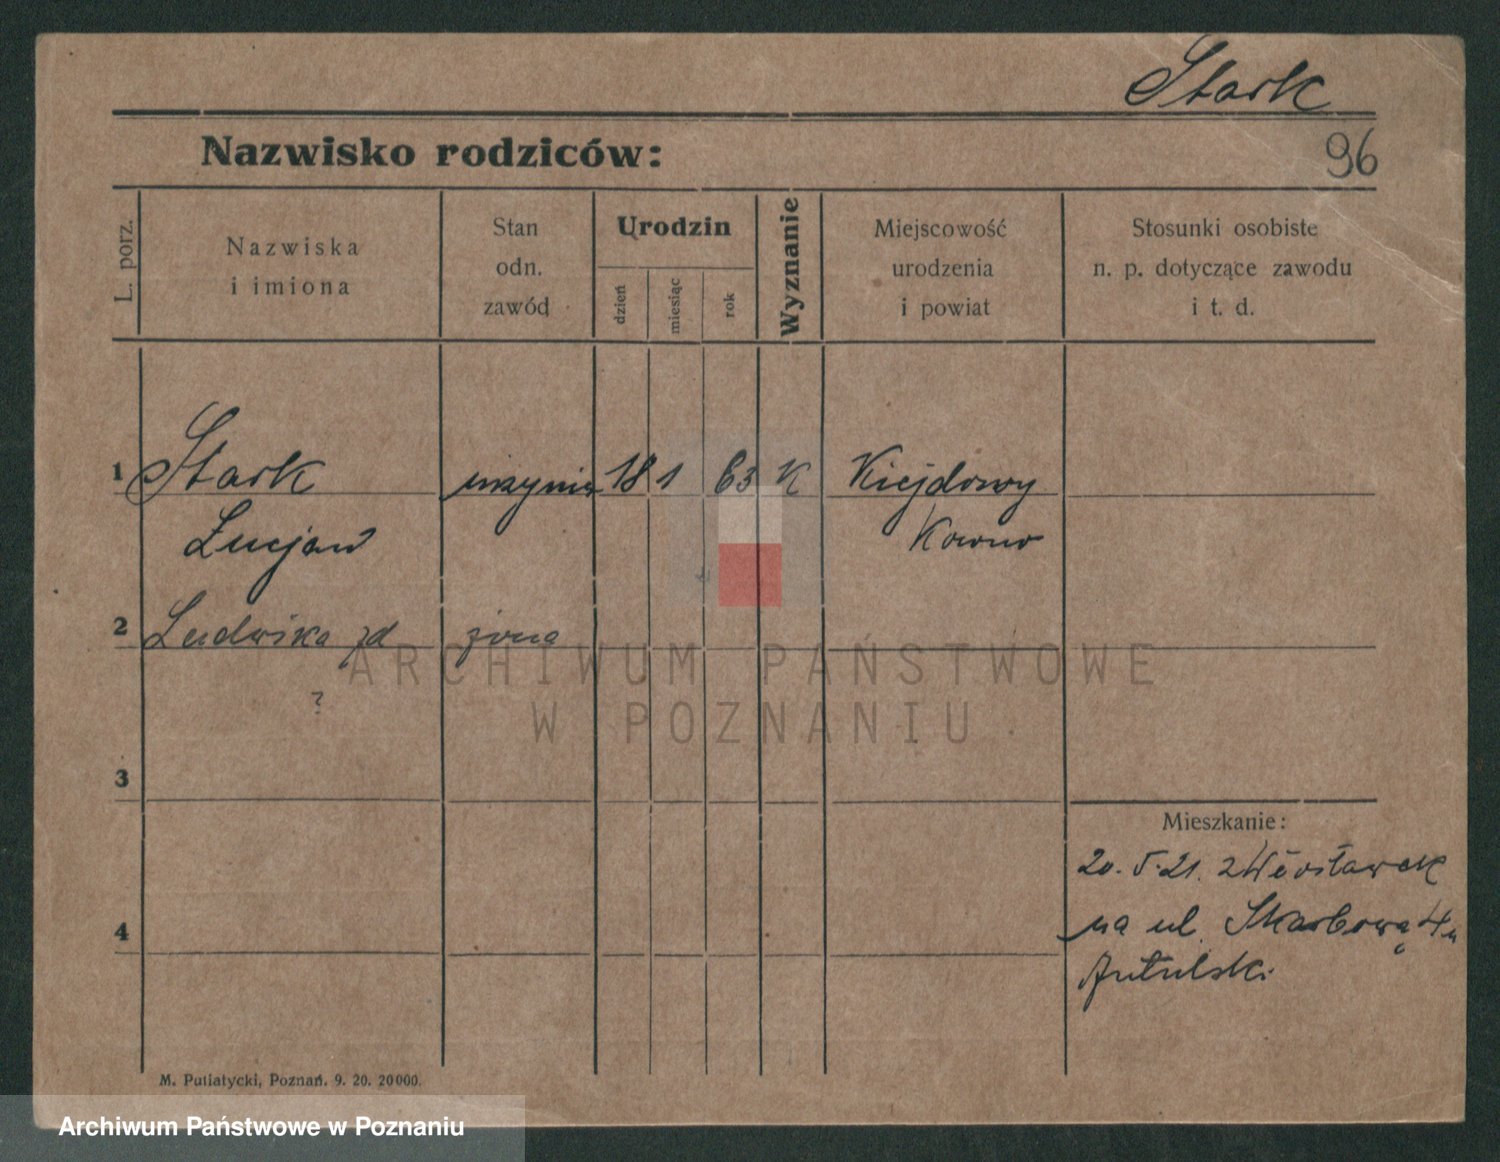 Stark
Nazwisko rodziców:
96
L. porz.
Nazwiska
i imiona
Stan
odn.
zawód
Urodzin
dzień
miesiąc
rok
Wyznanie
Miejscowość
urodzenia
i powiat
Stosunki osobiste
n. p. dotyczące zawodu
i t. d.
1 Stark inżynier 18 1 63 K Kiejdowy
Łucjan Kowno
2 Ludwika zd żona
?
3
4
Mieszkanie:
20.5.21. z Włocławek
na ul. Skarbową 4 u
M. Putiatycki, Poznań. 9. 20. 20000.
ARCHIWUM PAŃSTWOWE
W POZNANIU
Archiwum Państwowe w Poznaniu